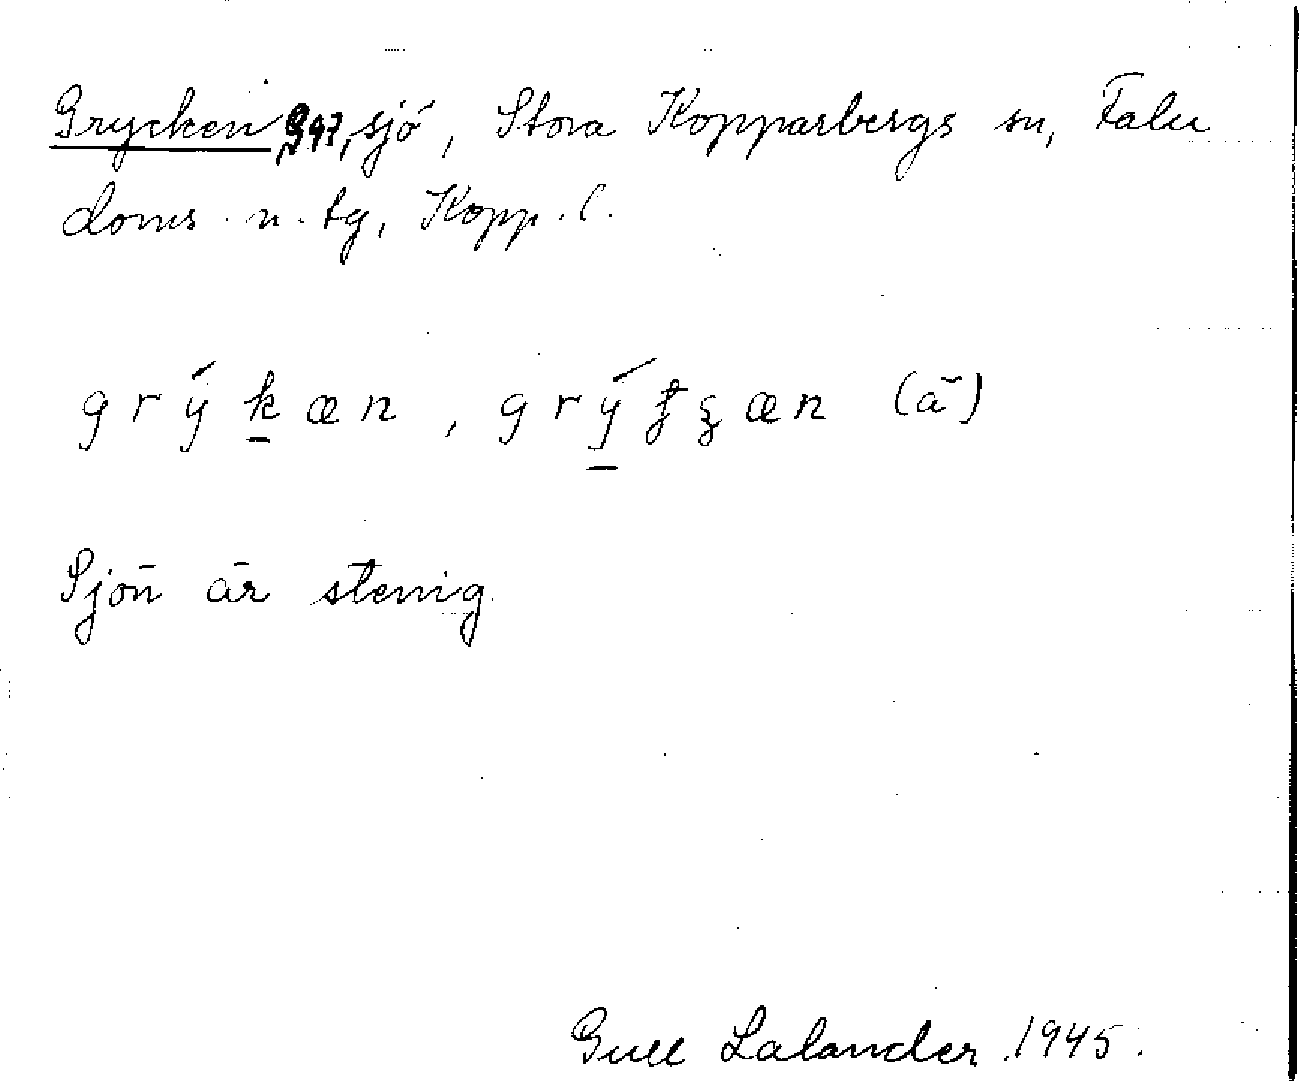 Grycken, G97, sjö, Stora Kopparbergs sn, Falu
doms. n. tg, Kopp. l.
grýk̲æn, grý̲ʈʂæn (ä)
Sjön är stenig
Gull Lalander 1945.